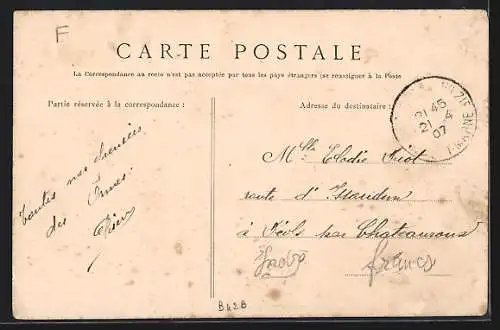 F
CARTE POSTALE
La Correspondance au recto n'est pas acceptée par tous les pays étrangers (se renseigner à la Poste
Partie réservée à la correspondance :
Adresse du destinataire :
21 45
21 4
07
Toutes nos
des
Mlle Elodie
route d'Issoudun
à Déols par Chateauroux
Indre
francs
B42B